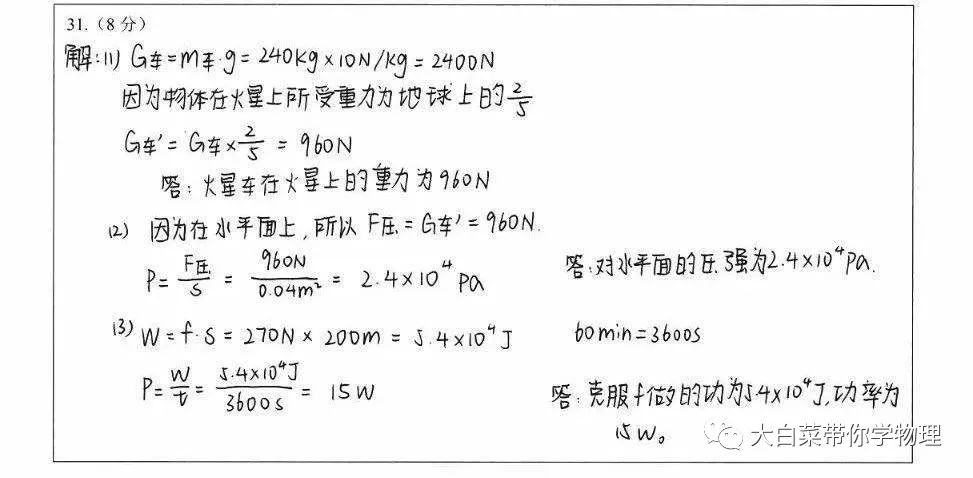 31.（8分）
解:(1) G车=m车·g=240kg×10N/kg=2400N
因为物体在火星上所受重力为地球上的2/5
G车′=G车×2/5=960N
答：火星车在火星上的重力为960N
(2) 因为在水平面上，所以F压=G车′=960N.
P=F压/S=960N/0.04m²=2.4×10⁴Pa
答:对水平面的压强为2.4×10⁴Pa.
(3) W=f·S=270N×200m=5.4×10⁴J
60min=3600s
P=W/t=5.4×10⁴J/3600s=15W
答：克服f做的功为5.4×10⁴J,功率为
15W。
大白菜带你学物理